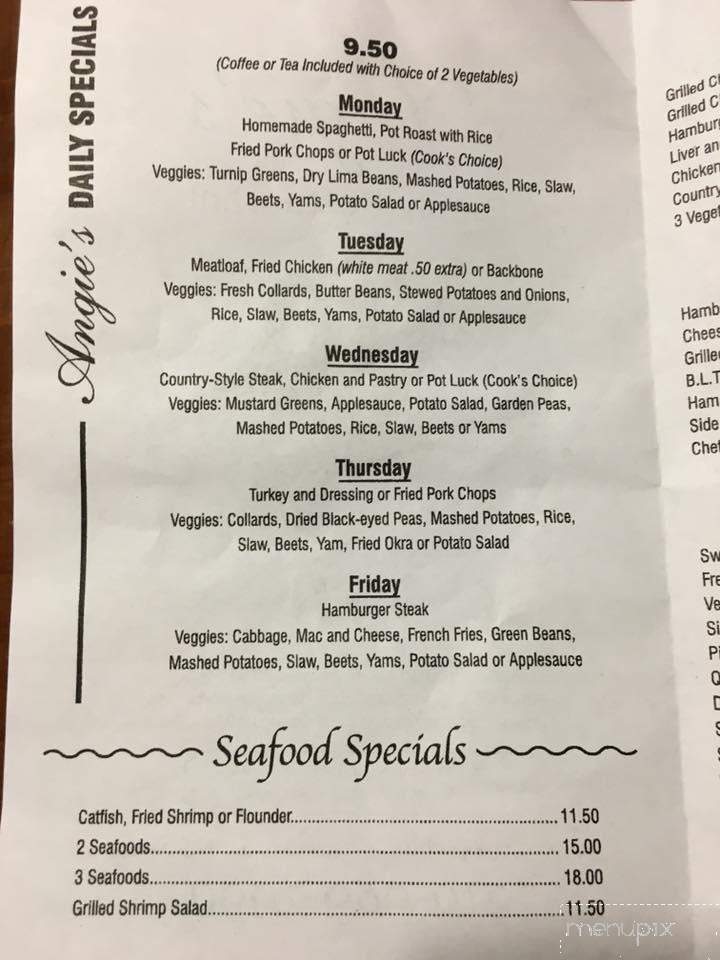 Angie's DAILY SPECIALS
9.50
(Coffee or Tea Included with Choice of 2 Vegetables)
Monday
Homemade Spaghetti, Pot Roast with Rice
Fried Pork Chops or Pot Luck (Cook's Choice)
Veggies: Turnip Greens, Dry Lima Beans, Mashed Potatoes, Rice, Slaw,
Beets, Yams, Potato Salad or Applesauce
Tuesday
Meatloaf, Fried Chicken (white meat .50 extra) or Backbone
Veggies: Fresh Collards, Butter Beans, Stewed Potatoes and Onions,
Rice, Slaw, Beets, Yams, Potato Salad or Applesauce
Wednesday
Country-Style Steak, Chicken and Pastry or Pot Luck (Cook's Choice)
Veggies: Mustard Greens, Applesauce, Potato Salad, Garden Peas,
Mashed Potatoes, Rice, Slaw, Beets or Yams
Thursday
Turkey and Dressing or Fried Pork Chops
Veggies: Collards, Dried Black-eyed Peas, Mashed Potatoes, Rice,
Slaw, Beets, Yam, Fried Okra or Potato Salad
Friday
Hamburger Steak
Veggies: Cabbage, Mac and Cheese, French Fries, Green Beans,
Mashed Potatoes, Slaw, Beets, Yams, Potato Salad or Applesauce
Seafood Specials
Catfish, Fried Shrimp or Flounder 11.50
2 Seafoods 15.00
3 Seafoods 18.00
Grilled Shrimp Salad 11.50
Grilled
Grilled
Liver an
Chicken
Country
3
B.L.T
Ham
Side
menupix